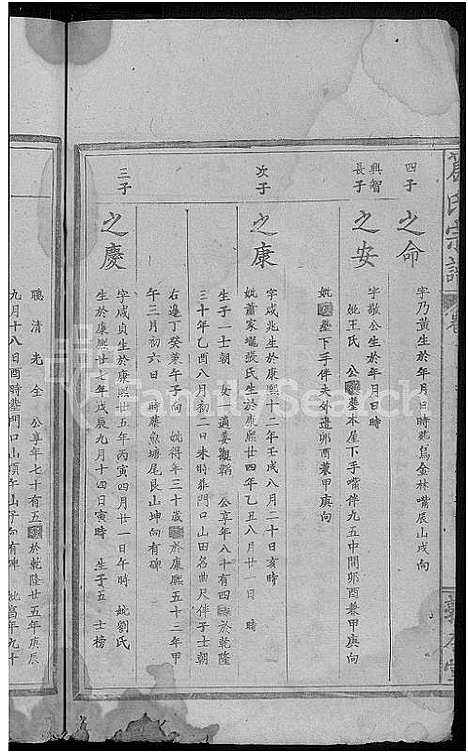 氏宗譜
四子
之命
字乃黃生於年月日時塟烏金林嘴辰山戌向
興智
長子
之安
字敬公生於年月日時
妣王氏 公塟墨木屋下手嘴伴九五中間卯酉兼甲庚向
妣塟下手伴夫外邊卯酉兼甲庚向
次子
之康
字咸兆生於康熙十二年壬戌八月二十日亥時
妣蕭家壠張氏生於康熙廿四年乙丑八月廿一日 時
生子一士朝 女一適姜觀韜 公享年八十有四於乾隆
三十年乙酉八月初二日未時塟門口山田名曲尺伴子士朝
右邊丁癸兼午子向 妣得年三十歲於康熙五十三年甲
午三月初六日 時塟魚塘尾艮山坤向有碑
三子
之慶
字咸貞生於康熙廿五年丙寅四月廿一日午時 妣劉氏
生於康熙廿七年戊辰九月十四日寅時 生子五 士榜
聰 清 光 全 公享年七十有五於乾隆廿五年庚辰
九月十八日酉時塟門口山頂午山子向有碑 妣享年九十
FamilySearch